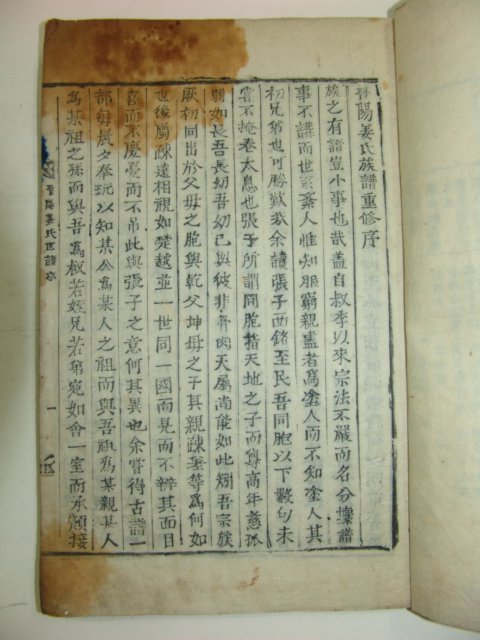 晋陽姜氏族譜重修序
族之有譜豈小事也哉盖自叔季以來宗法不嚴而名分壞譜
事不講而世系紊人惟知服窮親盡者爲塗人而不知塗人其
初兄弟也可勝歎哉余讀張子西銘至民吾同胞以下數句未
嘗不掩卷太息也張子所謂同胞指天地之子而尊高年慈孤
弱如長吾長幼吾幼己與彼非骨肉天屬尚能如此矧吾宗族
厥初同出於父母之胞與乾父坤母之子其親疎差等爲何如
世後屬疎遠相視如楚越並一世同一國而見而不辨其面目
喜而不慶憂而不吊此與張子之意何其異也余嘗得古譜一
部每晨夕奉玩以知某公爲某人之祖而與吾祖爲某親某人
爲某祖之孫而與吾爲叔若姪兄若弟宛如會一室而承顔接
晋陽姜氏世譜序
一